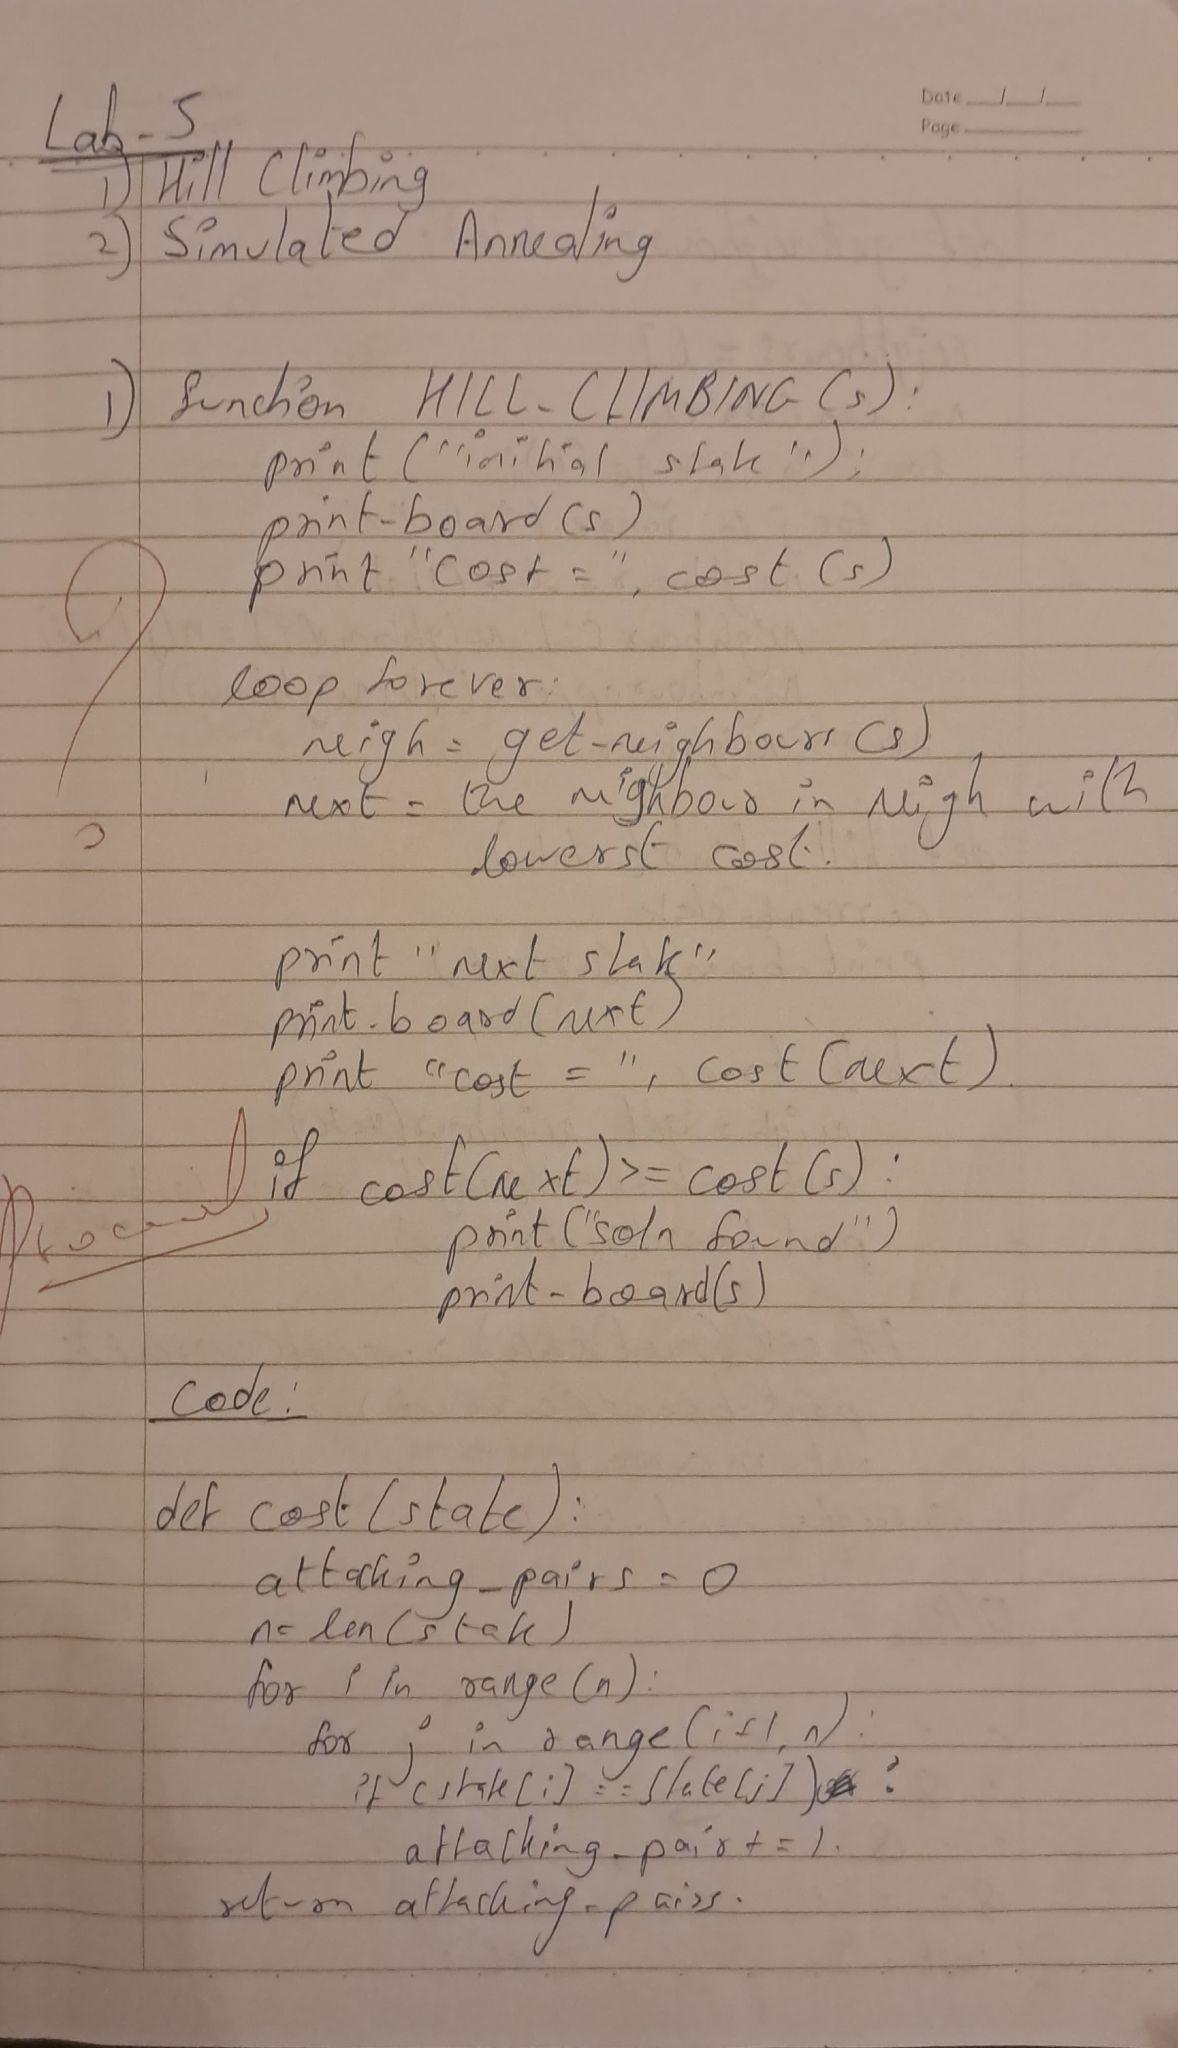 Date / /
Page
Lab-5
1) Hill Climbing
2) Simulated Annealing
1) function HILL-CLIMBING (s):
print ("initial state"):
print-board (s)
print "cost = ", cost (s)
loop forever:
neigh = get-neighbours (s)
next = the neighbour in neigh with
lowerst cost.
print "next state"
print-board (next)
print "cost = ", cost (next).
if cost(next) >= cost (s) :
print ("soln found")
print-board(s)
Code:
def cost (state):
attacking_pairs = 0
n = len (state)
for i in range (n):
for j in range (i+1, n):
if (state[i] == state[j]) :
attacking_pair += 1.
return attacking_pairs.